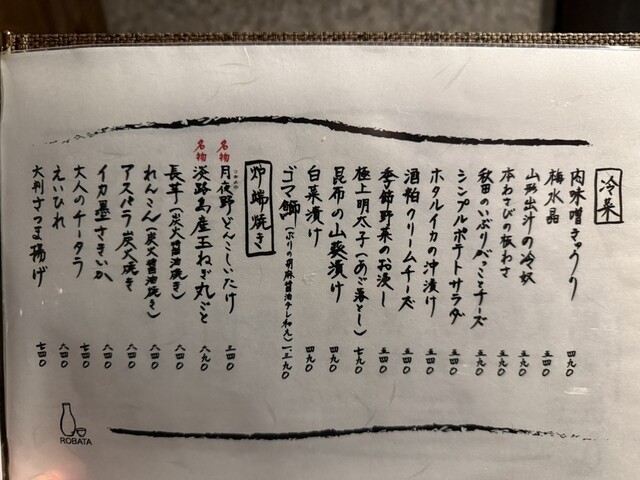 冷菜
肉味噌きゅうり 四九〇
梅水晶 五四〇
山形出汁の冷奴 五四〇
本わさびの板わさ 五九〇
秋田のいぶりがっことチーズ 五九〇
シンプルポテトサラダ 五四〇
ホタルイカの沖漬け 五四〇
酒粕クリームチーズ 五四〇
季節野菜のお浸し 五四〇
極上明太子(あご落とし) 七九〇
昆布の山葵漬け 四九〇
白菜漬け 四九〇
ゴマ鰤(ぶりの胡麻醤油タレ和え) 一、二九〇
炉端焼き
名物 月夜野どんこしいたけ 三四〇
名物 淡路島産玉ねぎ丸ごと 八九〇
長芋(炭火醤油焼き) 八四〇
れんこん(炭火醤油焼き) 八四〇
アスパラ炭火焼き 八四〇
イカ墨さきいか 八四〇
大人のチータラ 七四〇
えいひれ 八四〇
大判さつま揚げ 七四〇
ROBATA